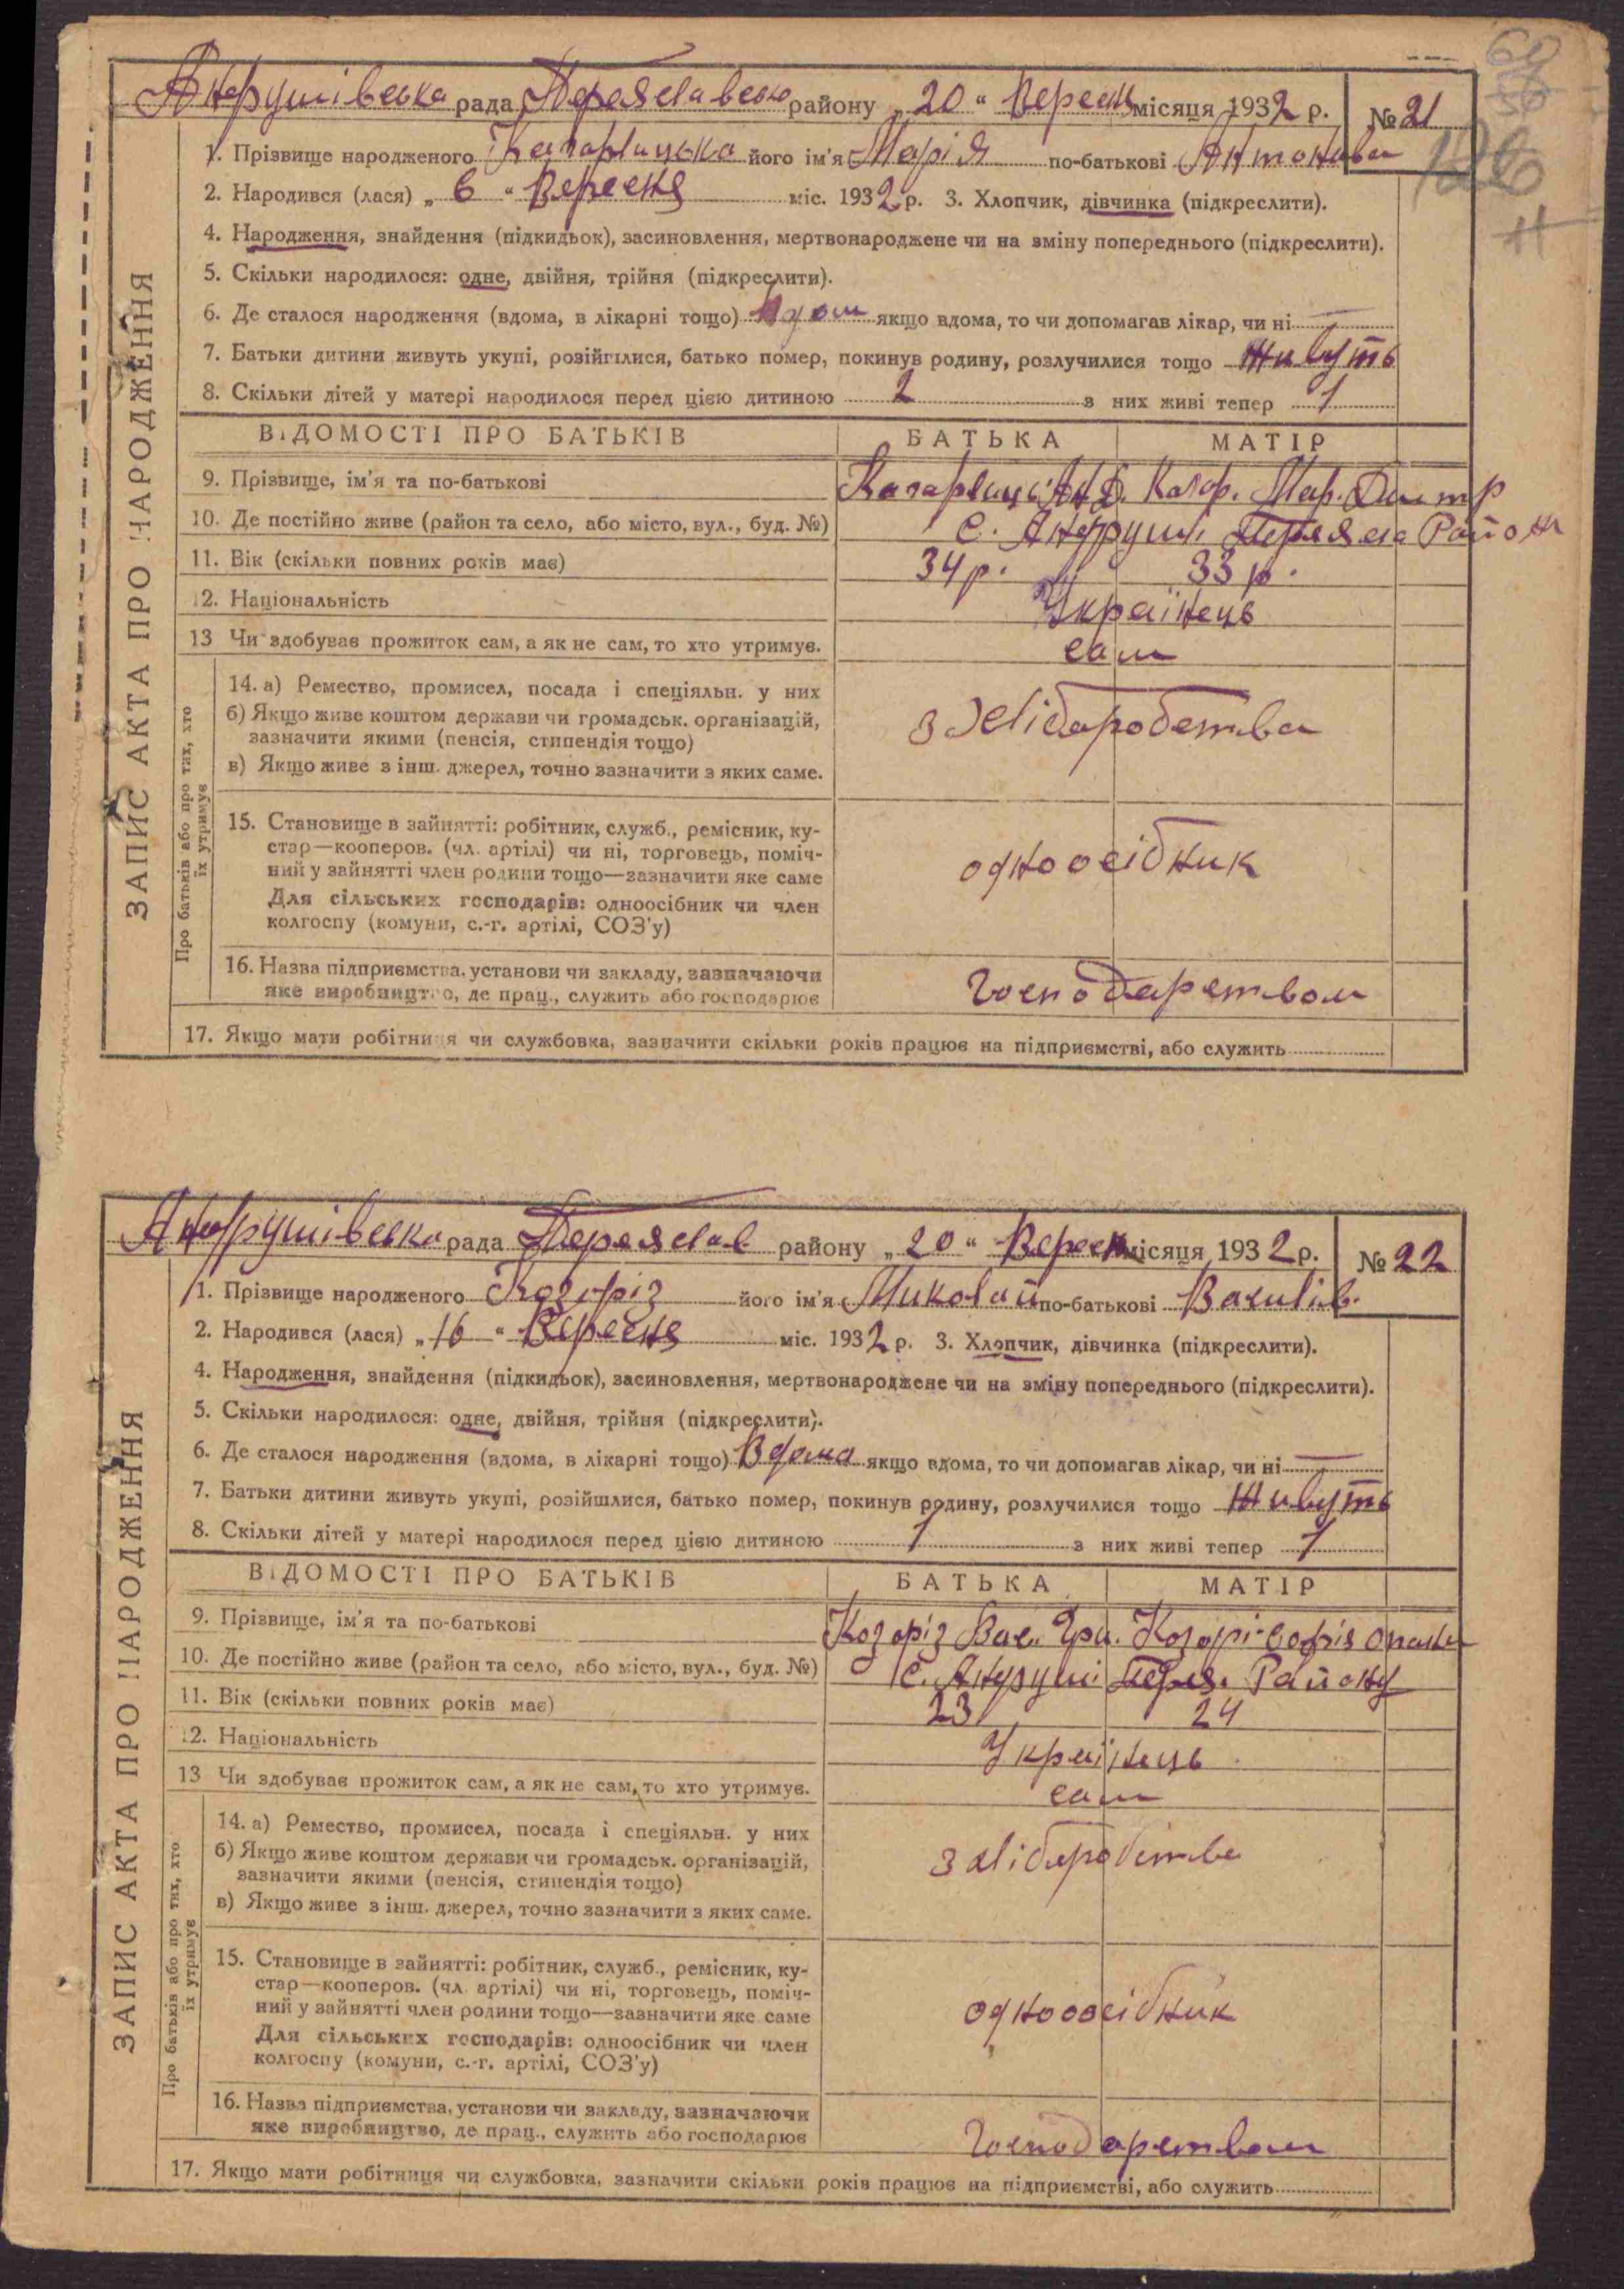 60
56
126
Н
Андрушівська рада Переяславськ району „ 20 “ Вересня місяця 1932 р. № 21
1. Прізвище народженого Кагарлицька його ім'я Марія по-батькові Антонова
2. Народився (лася) „ 6 “ Вересня міс. 1932 р. 3. Хлопчик, дівчинка (підкреслити).
4. Народження, знайдення (підкидьок), засиновлення, мертвонароджене чи на зміну попереднього (підкреслити).
5. Скільки народилося: одне, двійня, трійня (підкреслити).
6. Де сталося народження (вдома, в лікарні тощо) Вдом якщо вдома, то чи допомагав лікар, чи ні —
7. Батьки дитини живуть укупі, розійшлися, батько помер, покинув родину, розлучилися тощо Живуть
8. Скільки дітей у матері народилося перед цією дитиною 2 з них живі тепер 1
ВІДОМОСТІ ПРО БАТЬКІВ БАТЬКА МАТІР
9. Прізвище, ім'я та по-батькові Кагарлиць Ан Д. Кагар. Мар. Дмитр
10. Де постійно живе (район та село, або місто, вул., буд. №) с. Андруші Переясла Район
11. Вік (скільки повних років має) 34 р. 33 р.
12. Національність Українець
13 Чи здобував прожиток сам, а як не сам, то хто утримує. сам
14. а) Ремество, промисел, посада і спеціяльн. у них
б) Якщо живе коштом держави чи громадськ. організацій,
зазначити якими (пенсія, стипендія тощо)
з хлібаробства
в) Якщо живе з інш. джерел, точно зазначити з яких саме.
15. Становище в зайнятті: робітник, служб., ремісник, ку-
стар—кооперов. (чл. артілі) чи ні, торговець, поміч-
ний у зайнятті член родини тощо—зазначити яке саме
одноосібник
Для сільських господарів: одноосібник чи член
колгоспу (комуни, с.-г. артілі, СОЗ'у)
16. Назва підприємства, установи чи закладу, зазначаючи
яке виробництво, де прац., служить або господарює
Господарством
17. Якщо мати робітниця чи службовка, зазначити скільки років працює на підприємстві, або служить
ЗАПИС АКТА ПРО НАРОДЖЕННЯ
Про батьків або про тих, хто
їх утримує
Андрушівська рада Переяслав району „ 20 “ Вересн місяця 1932 р. № 22
1. Прізвище народженого Козоріз його ім'я Миколай по-батькові Васильів.
2. Народився (лася) „ 16 “ Вересня міс. 1932 р. 3. Хлопчик, дівчинка (підкреслити).
4. Народження, знайдення (підкидьок), засиновлення, мертвонароджене чи на зміну попереднього (підкреслити).
5. Скільки народилося: одне, двійня, трійня (підкреслити).
6. Де сталося народження (вдома, в лікарні тощо) Вдома якщо вдома, то чи допомагав лікар, чи ні —
7. Батьки дитини живуть укупі, розійшлися, батько помер, покинув родину, розлучилися тощо Живуть
8. Скільки дітей у матері народилося перед цією дитиною 1 з них живі тепер 1
ВІДОМОСТІ ПРО БАТЬКІВ БАТЬКА МАТІР
9. Прізвище, ім'я та по-батькові Козоріз Вас. Гри. Козорі Софія Опана
10. Де постійно живе (район та село, або місто, вул., буд. №) с. Андруші Перея. Району
11. Вік (скільки повних років має) 23 24
12. Національність Українець
13 Чи здобував прожиток сам, а як не сам, то хто утримує. сам
14. а) Ремество, промисел, посада і спеціяльн. у них
б) Якщо живе коштом держави чи громадськ. організацій,
зазначити якими (пенсія, стипендія тощо)
з хлібаробства
в) Якщо живе з інш. джерел, точно зазначити з яких саме.
15. Становище в зайнятті: робітник, служб., ремісник, ку-
стар—кооперов. (чл. артілі) чи ні, торговець, поміч-
ний у зайнятті член родини тощо—зазначити яке саме
одноосібник
Для сільських господарів: одноосібник чи член
колгоспу (комуни, с.-г. артілі, СОЗ'у)
16. Назва підприємства, установи чи закладу, зазначаючи
яке виробництво, де прац., служить або господарює
Господарством
17. Якщо мати робітниця чи службовка, зазначити скільки років працює на підприємстві, або служить
ЗАПИС АКТА ПРО НАРОДЖЕННЯ
Про батьків або про тих, хто
їх утримує